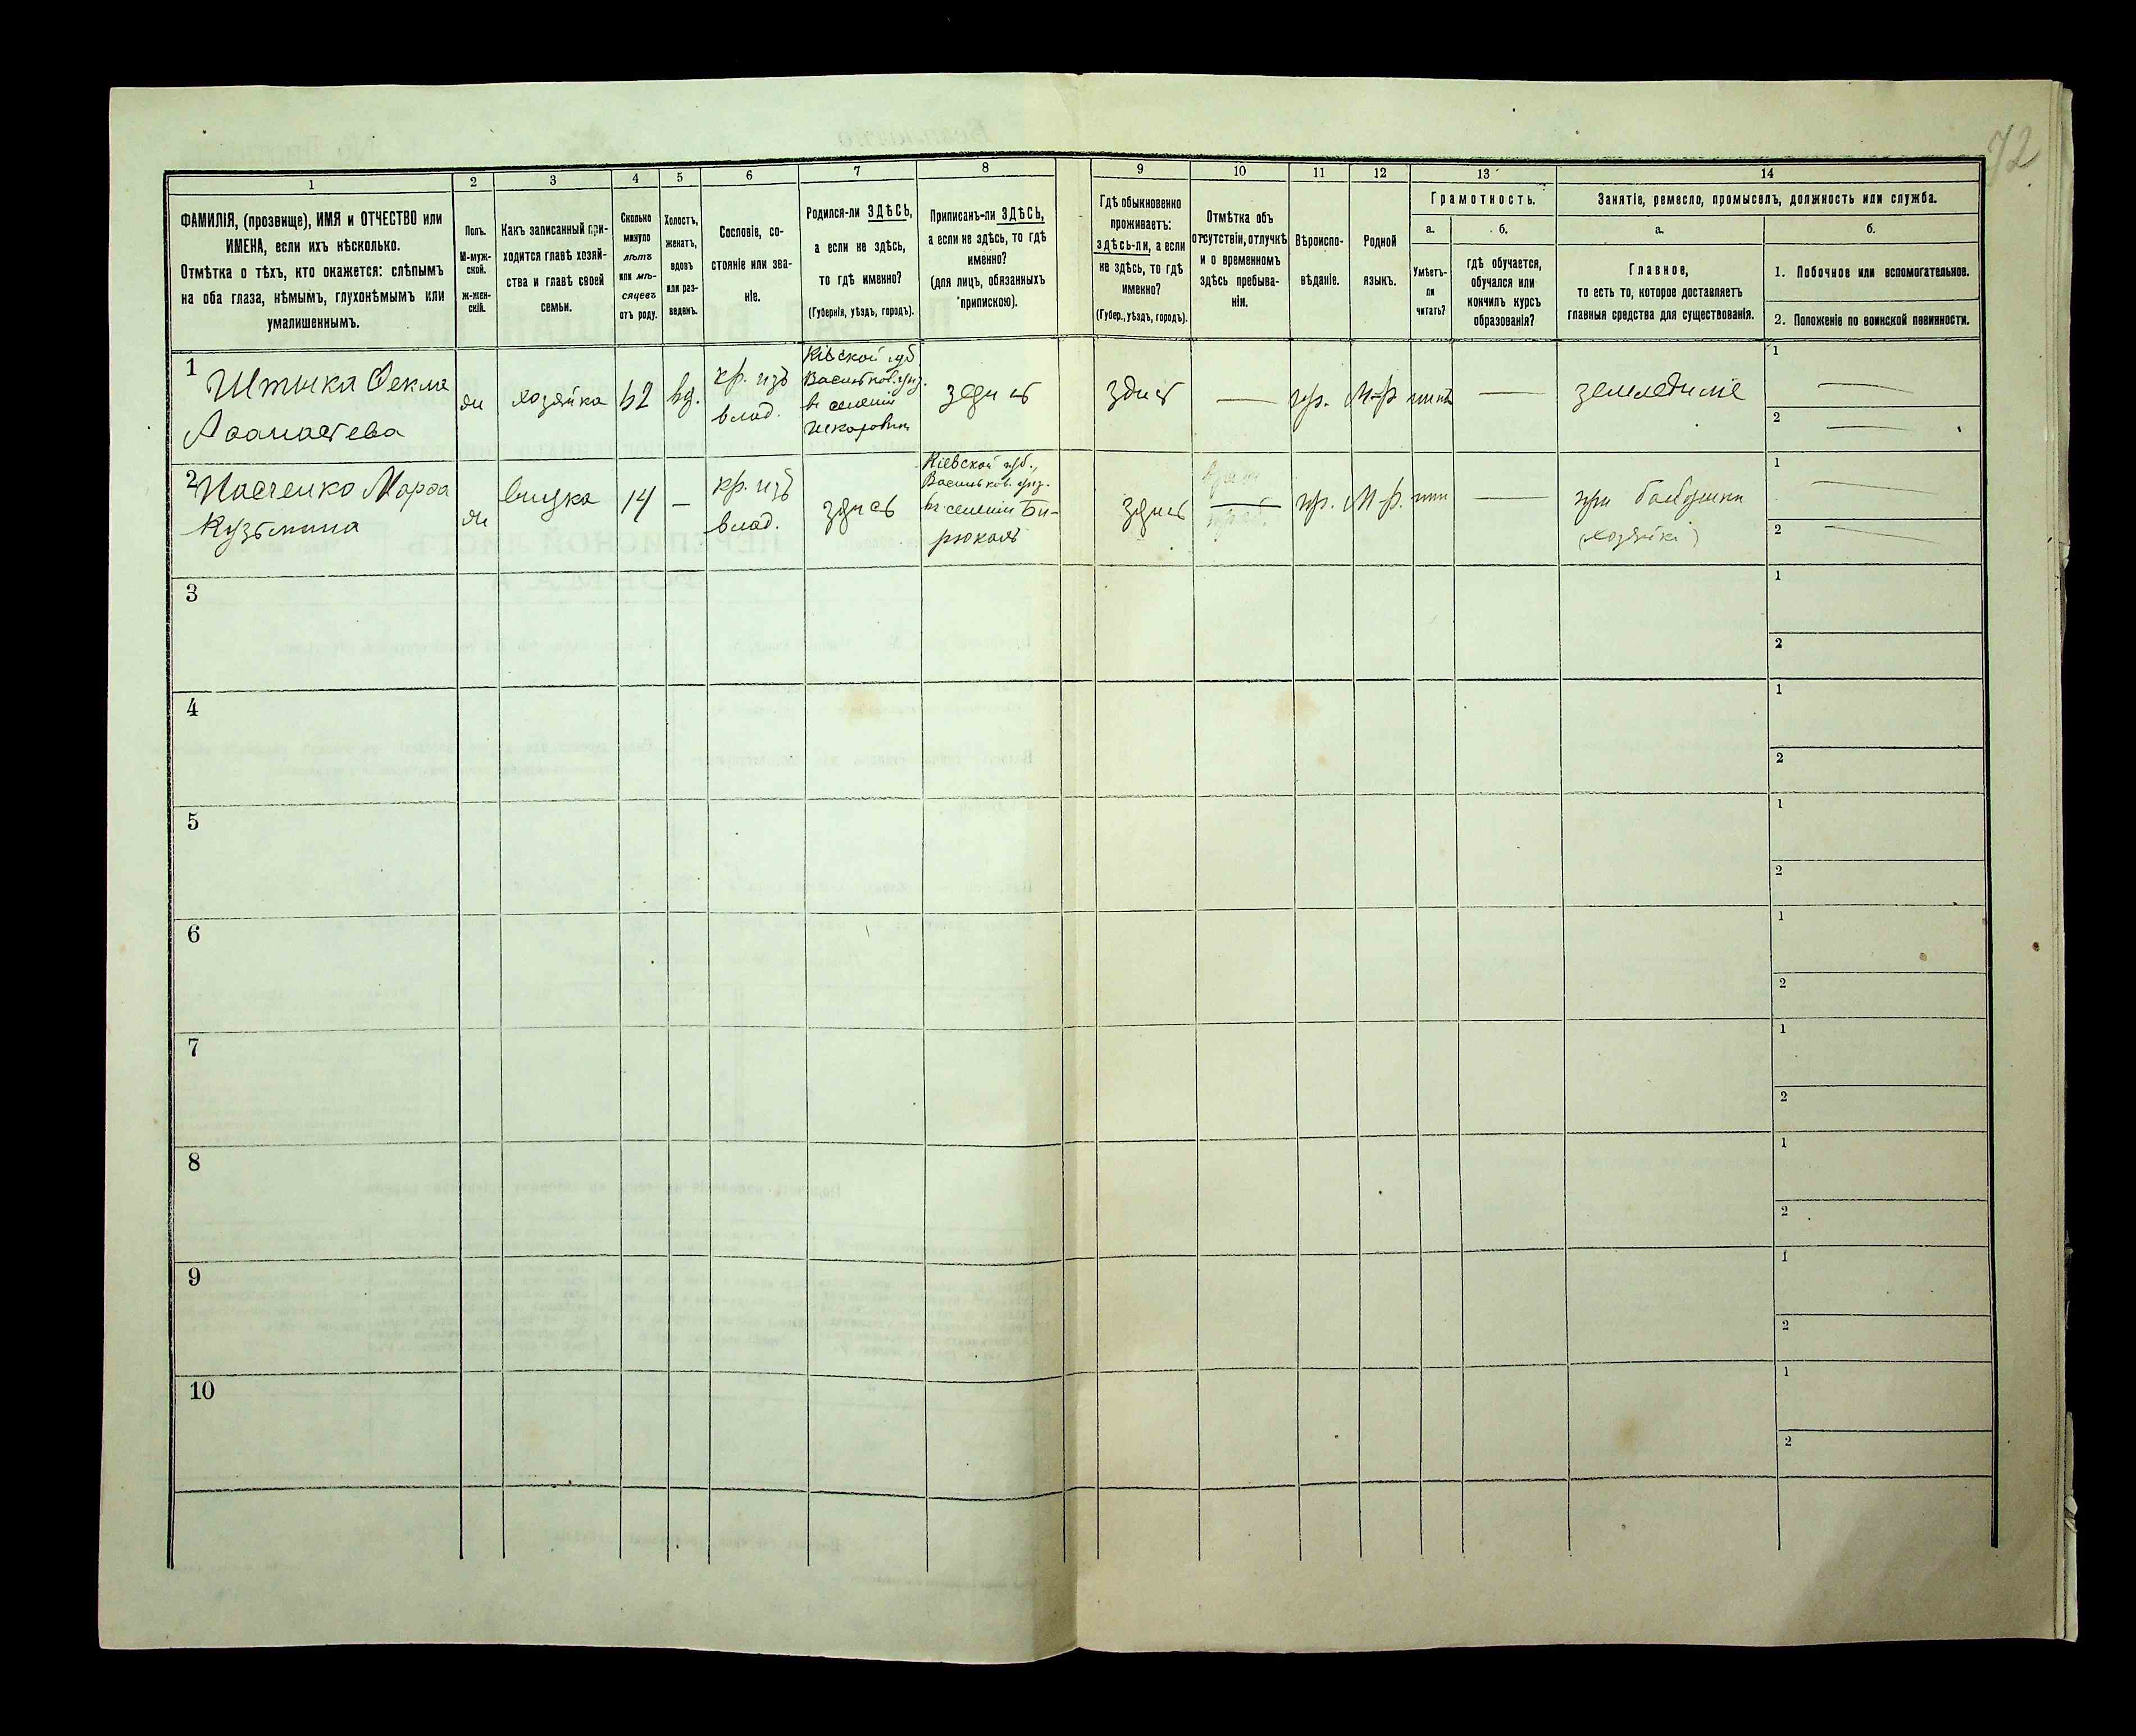 72
1
2
3
4
5
6
7
8
9
10
11
12
13
14
ФАМИЛІЯ, (прозвище), ИМЯ и ОТЧЕСТВО или
ИМЕНА, если ихъ нѣсколько.
Отмѣтка о тѣхъ, кто окажется: слѣпымъ
на оба глаза, нѣмымъ, глухонѣмымъ или
умалишеннымъ.
Полъ.
М-муж-
ской.
ж-жен-
скій.
Какъ записанный при-
ходится главѣ хозяй-
ства и главѣ своей
семьи.
Сколько
минуло
лѣтъ
или мѣ-
сяцевъ
отъ роду.
Холостъ,
женатъ,
вдовъ
или раз-
веденъ.
Сословіе, со-
стояніе или зва-
ніе.
Родился-ли ЗДѢСЬ,
а если не здѣсь,
то гдѣ именно?
(Губернія, уѣздъ, городъ).
Приписанъ-ли ЗДѢСЬ,
а если не здѣсь, то гдѣ
именно?
(для лицъ, обязанныхъ
припискою).
Гдѣ обыкновенно
проживаетъ:
здѣсь-ли, а если
не здѣсь, то гдѣ
именно?
(Губер., уѣздъ, городъ).
Отмѣтка объ
отсутствіи, отлучкѣ
и о временномъ
здѣсь пребыва-
ніи.
Вѣроиспо-
вѣданіе.
Родной
языкъ.
Грамотность.
а.
Умѣетъ-
ли
читать?
б.
гдѣ обучается,
обучался или
кончилъ курсъ
образованія?
Занятіе, ремесло, промыселъ, должность или служба.
а.
Главное,
то есть то, которое доставляетъ
главныя средства для существованія.
б.
1. Побочное или вспомогательное.
2. Положеніе по воинской повинности.
1
Штыка Фекла
Аѳанасіева
ж
хозяйка
62
вд.
кр. изъ
влад.
Кіевской губ
Васильков. уѣз.
въ селеніи
здѣсь
здѣсь
—
пр.
М-р
нѣтъ
—
земледѣліе
1 —
2 —
2
Пасченко Марѳа
Кузьмина
ж
внучка
14
—
кр. изъ
влад.
здѣсь
Кіевской губ.,
Васильков. уѣз.
въ селеніи Би-
рюкахъ
здѣсь
—
пр.
М-р.
нѣт
—
при бабушки
(хозяйкѣ)
1 —
2 —
3
1
2
4
1
2
5
1
2
6
1
2
7
1
2
8
1
2
9
1
2
10
1
2